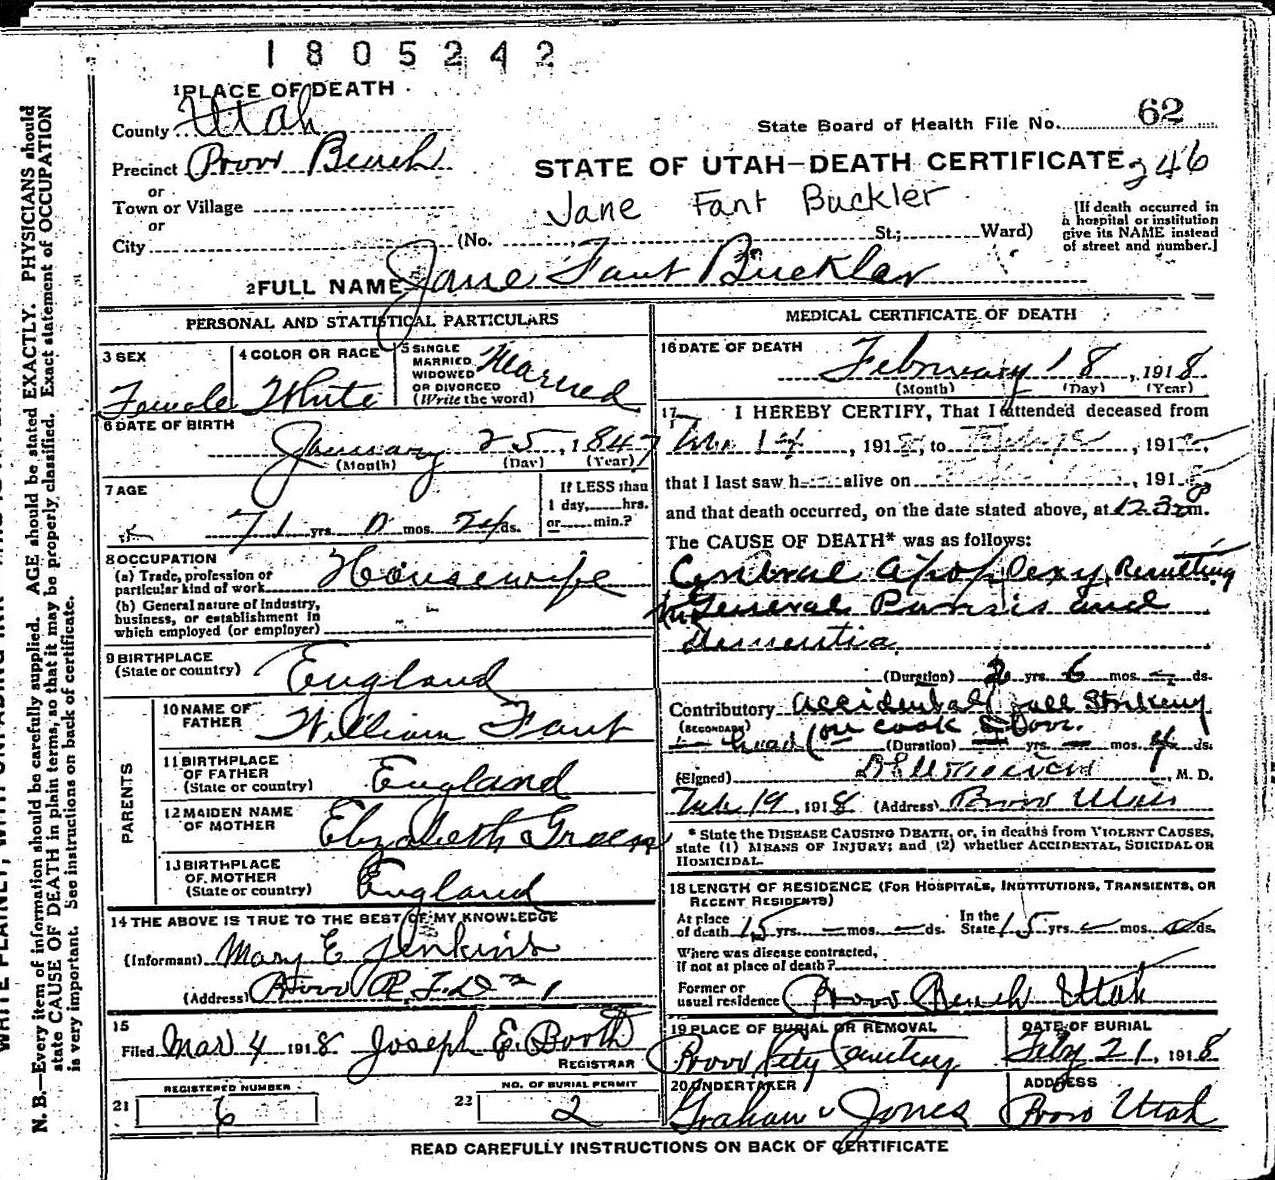 1 8 0 5 2 4 2
1 PLACE OF DEATH
County Utah
Precinct Provo Bench
or
Town or Village
or
City
State Board of Health File No. 62
STATE OF UTAH—DEATH CERTIFICATE 246
Jane Fant Buckler
(No. St.; Ward)
[If death occurred in
a hospital or institution
give its NAME instead
of street and number.]
2 FULL NAME Jane Fant Buckler
PERSONAL AND STATISTICAL PARTICULARS
3 SEX
Female
4 COLOR OR RACE
White
5 SINGLE
MARRIED
WIDOWED
OR DIVORCED
(Write the word)
Married
6 DATE OF BIRTH
January 25, 1847
(Month) (Day) (Year)
7 AGE
71 yrs. 0 mos. 24 ds.
If LESS than
1 day, hrs.
or min.?
8 OCCUPATION
(a) Trade, profession or
particular kind of work Housewife
(b) General nature of Industry,
business, or establishment in
which employed (or employer)
9 BIRTHPLACE
(State or country) England
PARENTS
10 NAME OF
FATHER William Fant
11 BIRTHPLACE
OF FATHER
(State or country) England
12 MAIDEN NAME
OF MOTHER Elizabeth Green
13 BIRTHPLACE
OF MOTHER
(State or country) England
14 THE ABOVE IS TRUE TO THE BEST OF MY KNOWLEDGE
(Informant) Mary E Jenkins
(Address) Provo R.F.D. 1
15
Filed Mar 4 1918 Joseph E. Booth
REGISTRAR
REGISTERED NUMBER
21 6
NO. OF BURIAL PERMIT
22 2
MEDICAL CERTIFICATE OF DEATH
16 DATE OF DEATH
February 18, 1918
(Month) (Day) (Year)
17 I HEREBY CERTIFY, That I attended deceased from
14, 191 to , 191
that I last saw h alive on , 191
and that death occurred, on the date stated above, at 12 30 P m.
The CAUSE OF DEATH* was as follows:
Cerebral apoplexy, Resulting
in General Paresis and
dementia
(Duration) 2 yrs. 6 mos. ds.
Contributory accidental fall Striking
(SECONDARY)
head (on cook Stove.
(Duration) yrs. mos. 4 ds.
(Signed) , M. D.
Feb 19, 1918 (Address) Provo Utah
* State the DISEASE CAUSING DEATH, or, in deaths from VIOLENT CAUSES,
state (1) MEANS OF INJURY; and (2) whether ACCIDENTAL, SUICIDAL OR
HOMICIDAL.
18 LENGTH OF RESIDENCE (FOR HOSPITALS, INSTITUTIONS, TRANSIENTS, OR
RECENT RESIDENTS)
At place
of death 15 yrs. mos. ds.
In the
State 15 yrs. mos. ds.
Where was disease contracted,
if not at place of death?
Former or
usual residence Provo Bench Utah
19 PLACE OF BURIAL OR REMOVAL
Provo City Cemetery
DATE OF BURIAL
Feby 21, 1918
20 UNDERTAKER
Graham & Jones
ADDRESS
Provo Utah
READ CAREFULLY INSTRUCTIONS ON BACK OF CERTIFICATE
N. B.—Every item of information should be carefully supplied. AGE should be stated EXACTLY. PHYSICIANS should
state CAUSE OF DEATH in plain terms, so that it may be properly classified. Exact statement of OCCUPATION
is very important. See instructions on back of certificate.